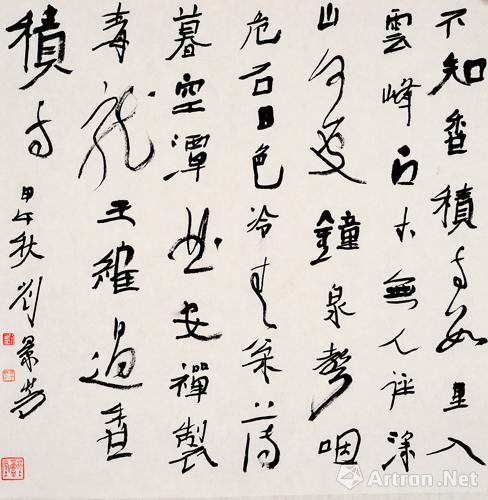 不知香積寺數里入
雲峰古木無人徑深
山何處鐘泉聲咽
危石日色冷青松薄
暮空潭曲安禪製
毒龍王維過香
積寺
甲午秋劉景
Artron.Net